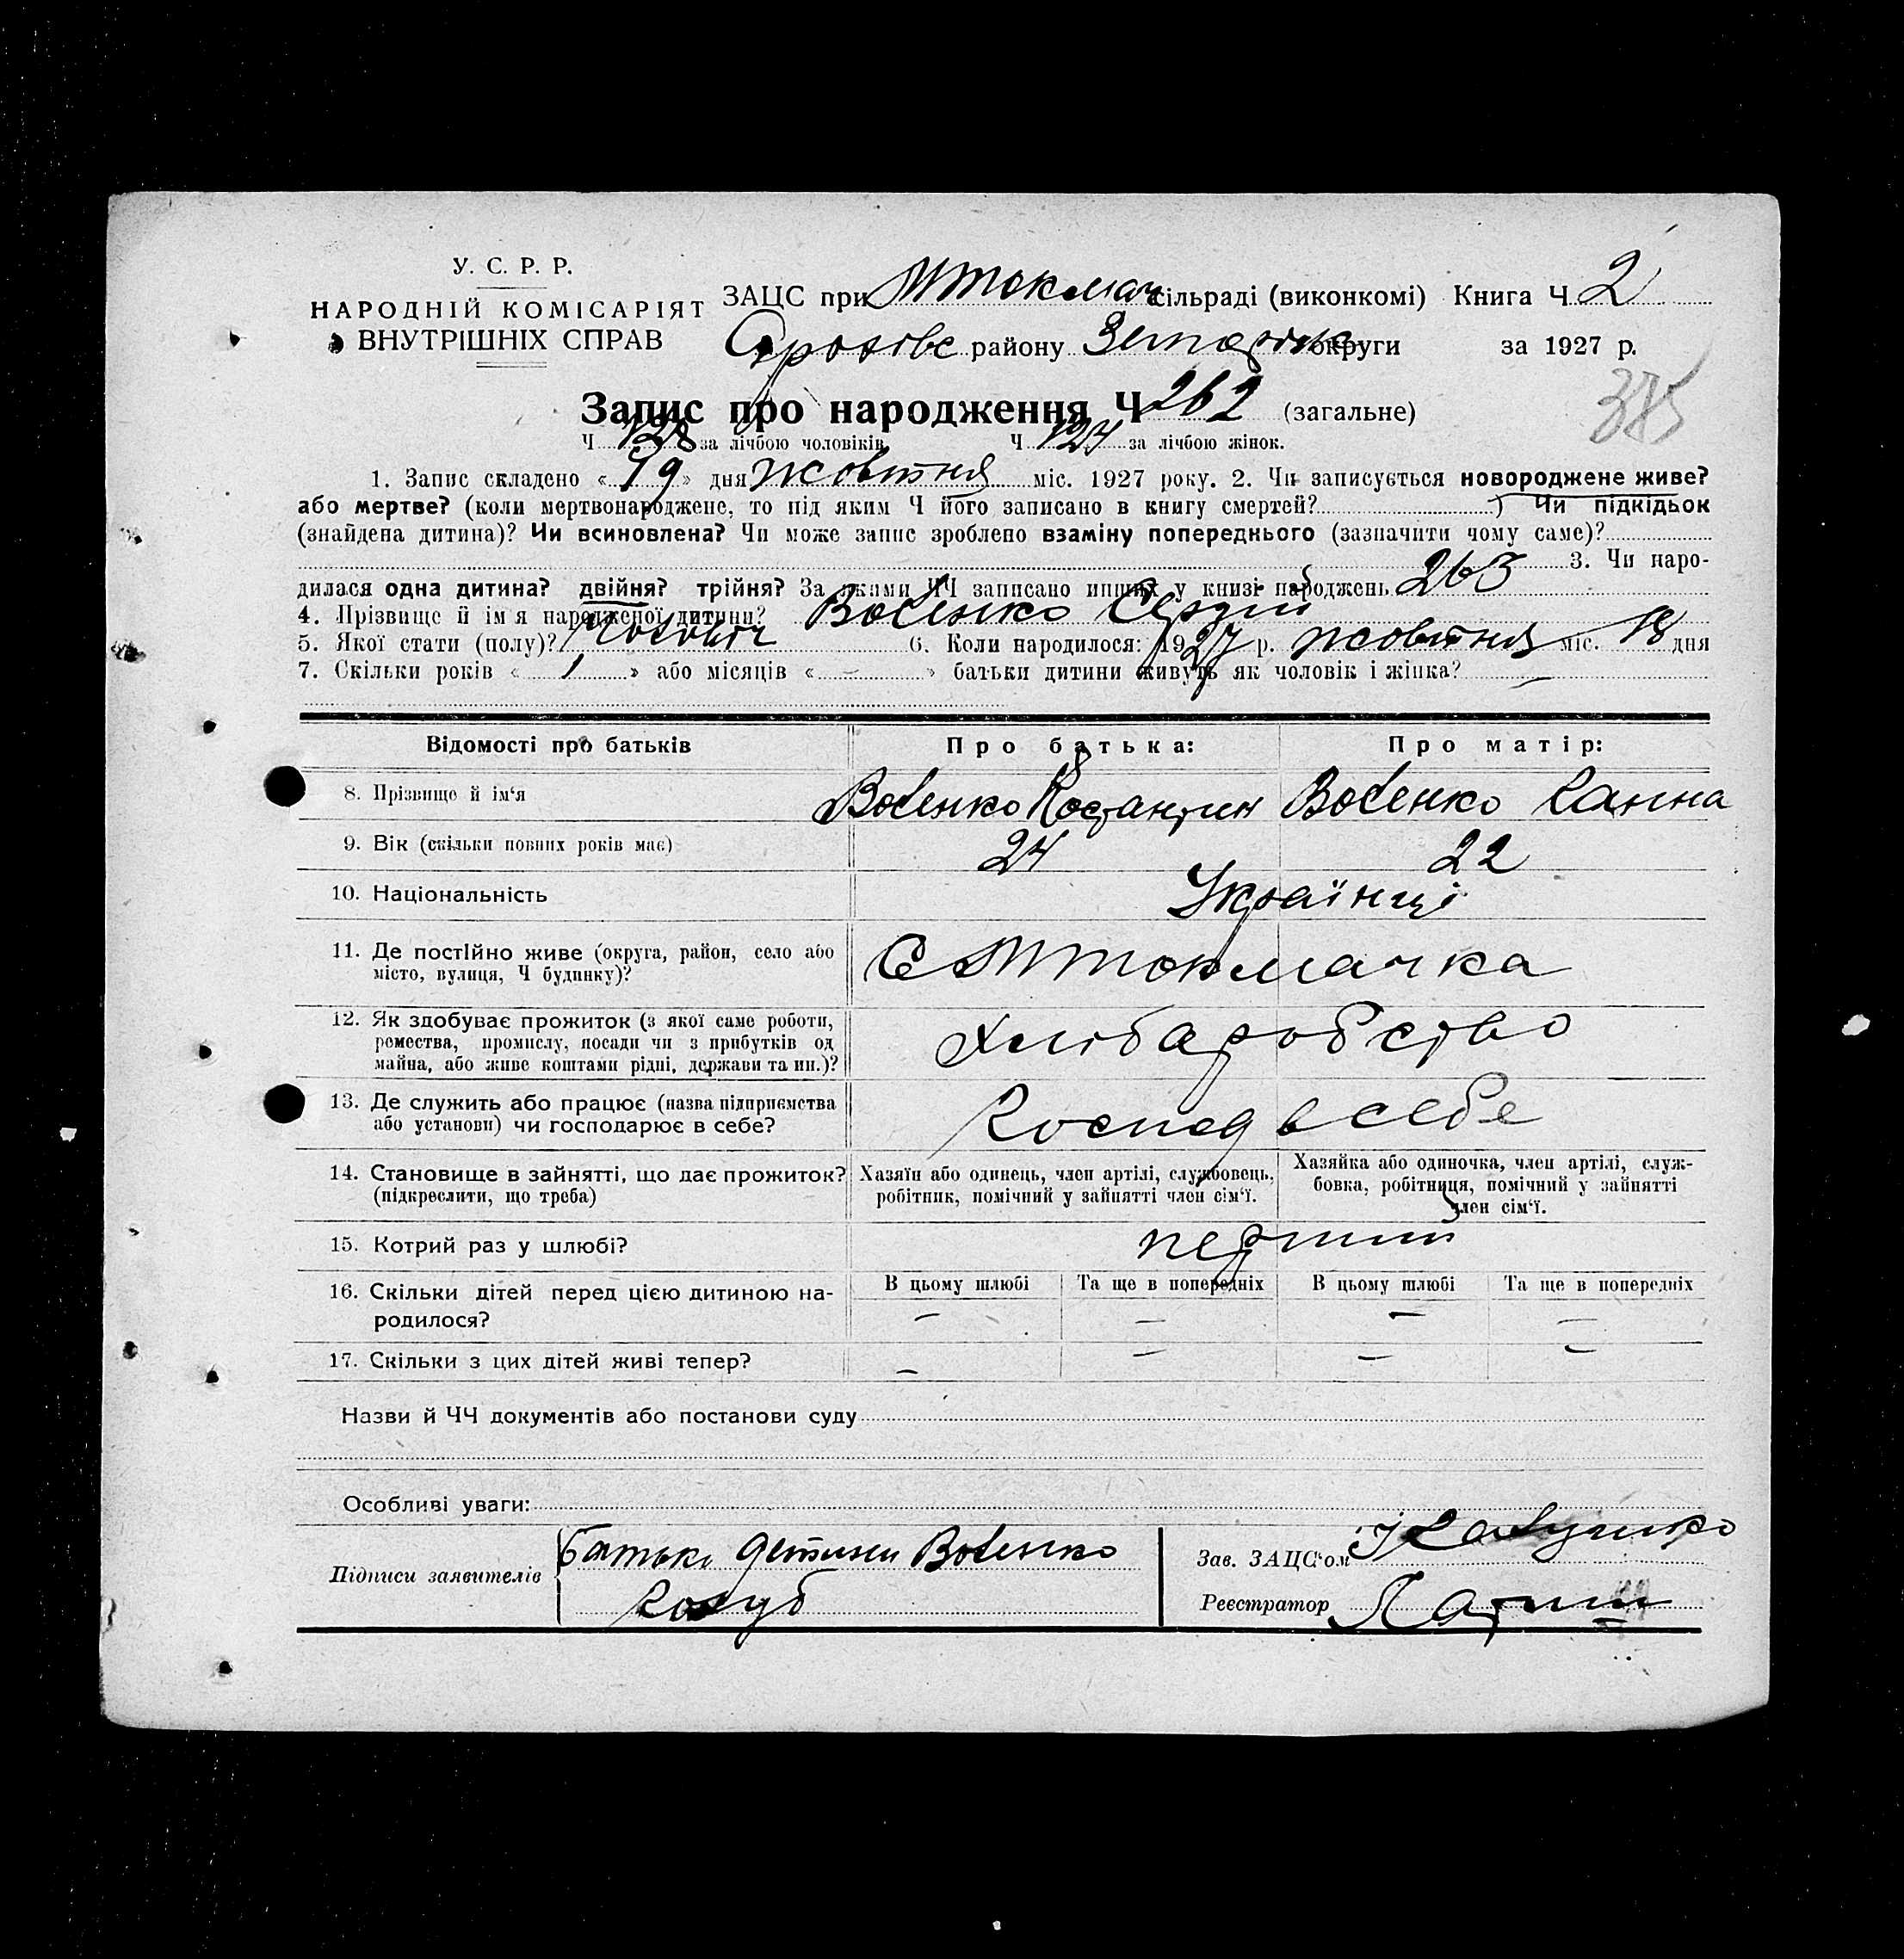 У. С. Р. Р.
НАРОДНІЙ КОМІСАРІЯТ
ВНУТРІШНІХ СПРАВ
ЗАЦС при МТокмач сільраді (виконкомі) Книга Ч 2
району округи за 1927 р.
385
Запис про народження Ч 262 (загальне)
Ч 138 за лічбою чоловіків Ч 124 за лічбою жінок.
1. Запис складено « 19 » дня жовтня міс. 1927 року. 2. Чи записується новороджене живе?
або мертве? (коли мертвонароджене, то під яким Ч його записано в книгу смертей? ) Чи підкідьок
(знайдена дитина)? Чи всиновлена? Чи може запис зроблено взаміну попереднього (зазначити чому саме)?
3. Чи наро-
дилася одна дитина? двійня? трійня? За якими ЧЧ записано инших у книзі народжень 263
4. Прізвище й ім'я народженої дитини? Вовенко Сергій
5. Якої стати (полу)? Чоловіч 6. Коли народилося: 1927 р. жовтня міс. 18 дня
7. Скільки років « 1 » або місяців « – » батьки дитини живуть як чоловік і жінка? –
Відомості про батьків Про батька: Про матір:
8. Прізвище й ім'я Вовенко Костантин Вовенко Ганна
9. Вік (скільки повних років має) 24 22
10. Національність Українці
11. Де постійно живе (округа, район, село або
місто, вулиця, Ч будинку)? С МТокмачка
12. Як здобуває прожиток (з якої саме роботи,
ремества, промислу, посади чи з прибутків од
майна, або живе коштами рідні, держави та ин.)? Хлібаробство
13. Де служить або працює (назва підприємства
або установи) чи господарює в себе? Господ в себе
14. Становище в зайнятті, що дає прожиток?
(підкреслити, що треба)
Хазяїн або одинець, член артілі, службовець,
робітник, помічний у зайнятті член сім'ї.
Хазяйка або одиночка, член артілі, служ-
бовка, робітниця, помічний у зайнятті
член сім'ї.
15. Котрий раз у шлюбі? перший
В цьому шлюбі Та ще в попередніх В цьому шлюбі Та ще в попередніх
16. Скільки дітей перед цією дитиною на-
родилося? – – – –
17. Скільки з цих дітей живі тепер? – – – –
Назви й ЧЧ документів або постанови суду
Особливі уваги:
Підписи заявителів Батько дитини Вовенко
Голуб
Зав. ЗАЦС'ом
Реєстратор